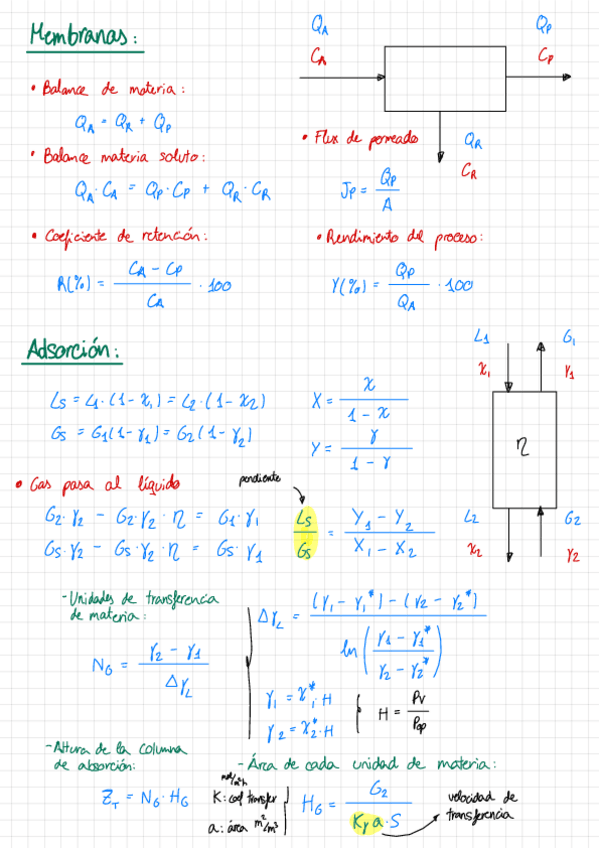 Membranas:
Q_A
C_A
Q_P
C_P
• Balance de materia:
Q_A = Q_R + Q_P
• Balance materia soluto:
Q_A · C_A = Q_P · C_P + Q_R · C_R
• Flux de permeado
J_P = Q_P / A
Q_R
C_R
• Coeficiente de retención:
R(%) = (C_A − C_P) / C_A · 100
• Rendimiento del proceso:
Y(%) = Q_P / Q_A · 100
Adsorción:
L_1
G_1
x_1
Y_1
η
L_S = L_1 · (1 − x_1) = L_2 · (1 − x_2)
G_S = G_1(1 − γ_1) = G_2(1 − γ_2)
X = x / (1 − x)
Y = γ / (1 − γ)
• Gas pasa al líquido
pendiente
G_2 · γ_2 − G_2 · γ_2 · η = G_1 · γ_1
G_S · γ_2 − G_S · γ_2 · η = G_S · γ_1
L_S / G_S = (Y_1 − Y_2) / (X_1 − X_2)
L_2
G_2
x_2
Y_2
- Unidades de transferencia
de materia:
N_G = (γ_2 − γ_1) / Δγ_L
Δγ_L = ((γ_1 − γ_1*) − (γ_2 − γ_2*)) / ln((γ_1 − γ_1*) / (γ_2 − γ_2*))
γ_1 = x_1* · H
γ_2 = x_2* · H
H = P_v / P_op
- Altura de la columna
de absorción:
Z_T = N_G · H_G
- Área de cada unidad de materia:
mol/m²h
K: coef transfer
a: área m²/m³
H_G = G_2 / (K_y a · S)
velocidad de
transferencia